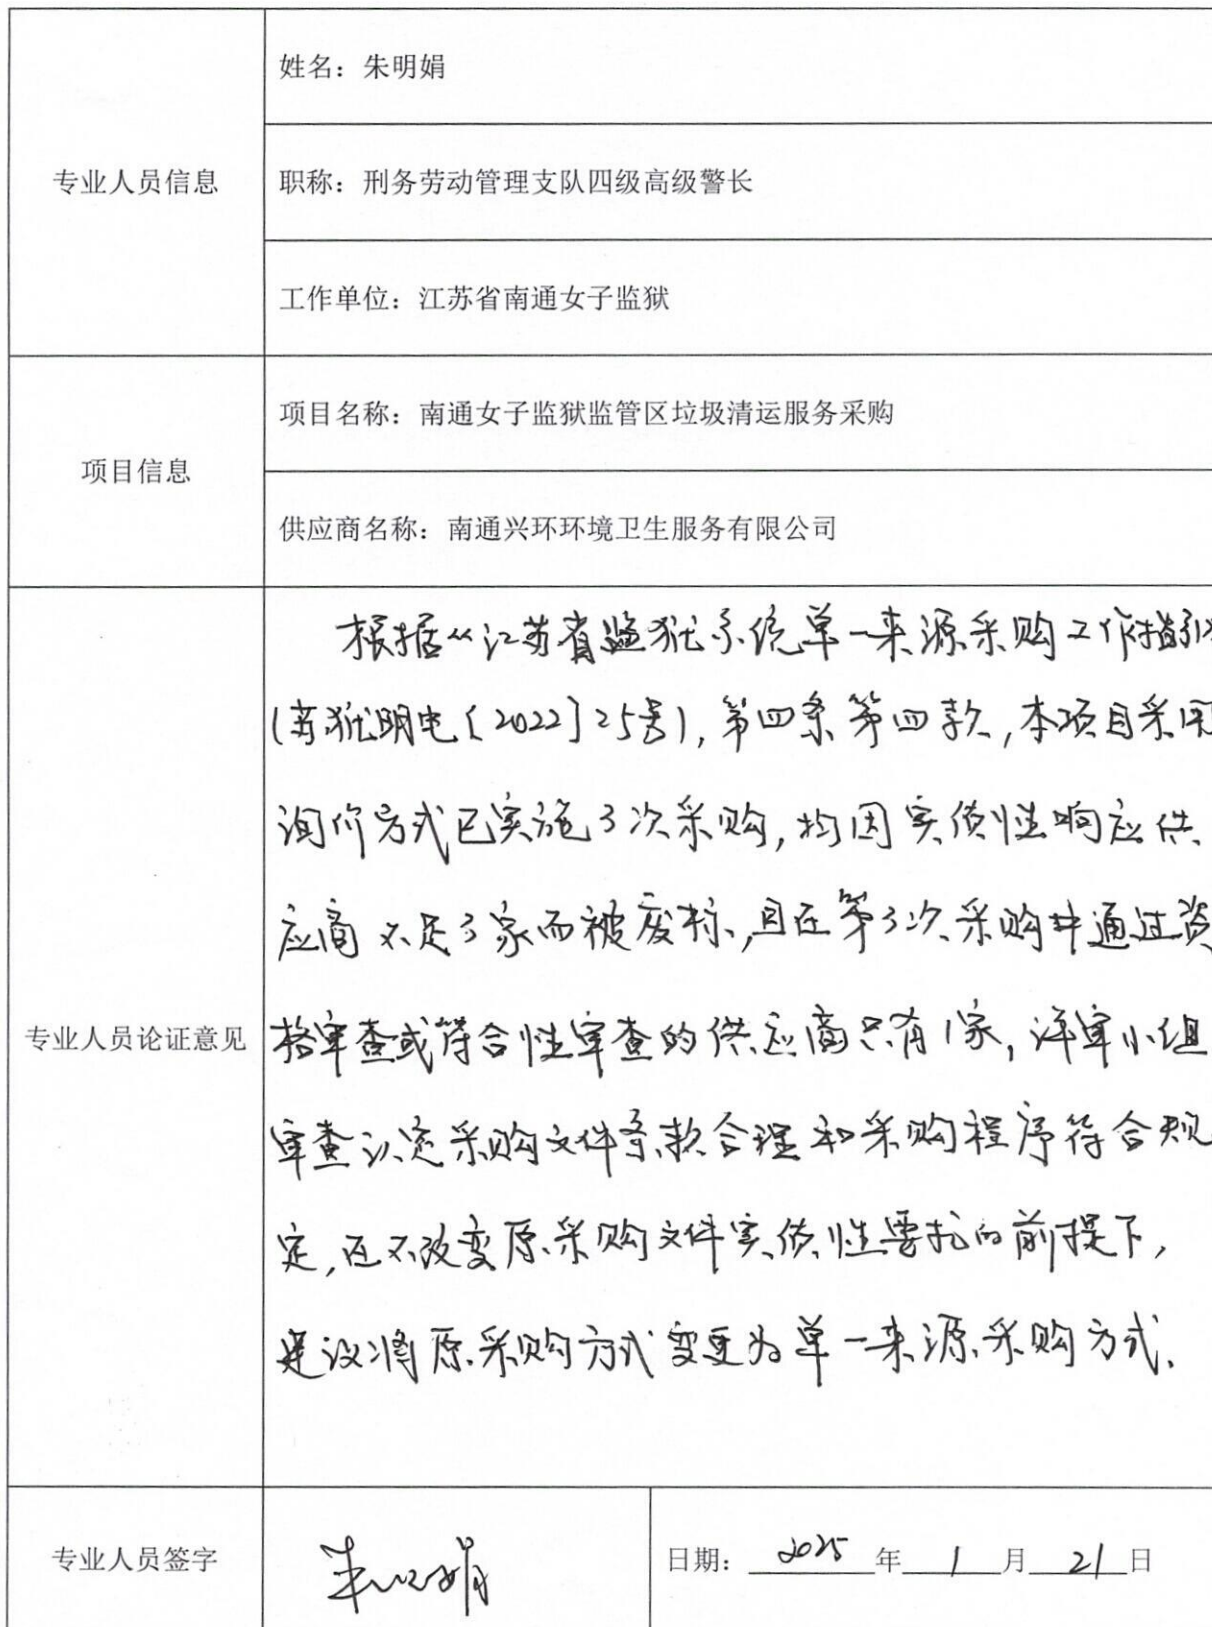 专业人员信息
姓名：朱明娟
职称：刑务劳动管理支队四级高级警长
工作单位：江苏省南通女子监狱
项目信息
项目名称：南通女子监狱监管区垃圾清运服务采购
供应商名称：南通兴环环境卫生服务有限公司
专业人员论证意见
根据《江苏省监狱系统单一来源采购工作指引》
(苏狱明电〔2022〕25号)，第四条第四款，本项目采用
询价方式已实施3次采购，均因实质性响应供
应商不足3家而被废标，且在第3次采购中通过资
格审查或符合性审查的供应商只有1家，评审小组
审查认定采购文件条款合理和采购程序符合规
定，在不改变原采购文件实质性要求的前提下，
建议将原采购方式变更为单一来源采购方式。
专业人员签字
朱明娟
日期：2025年1月21日